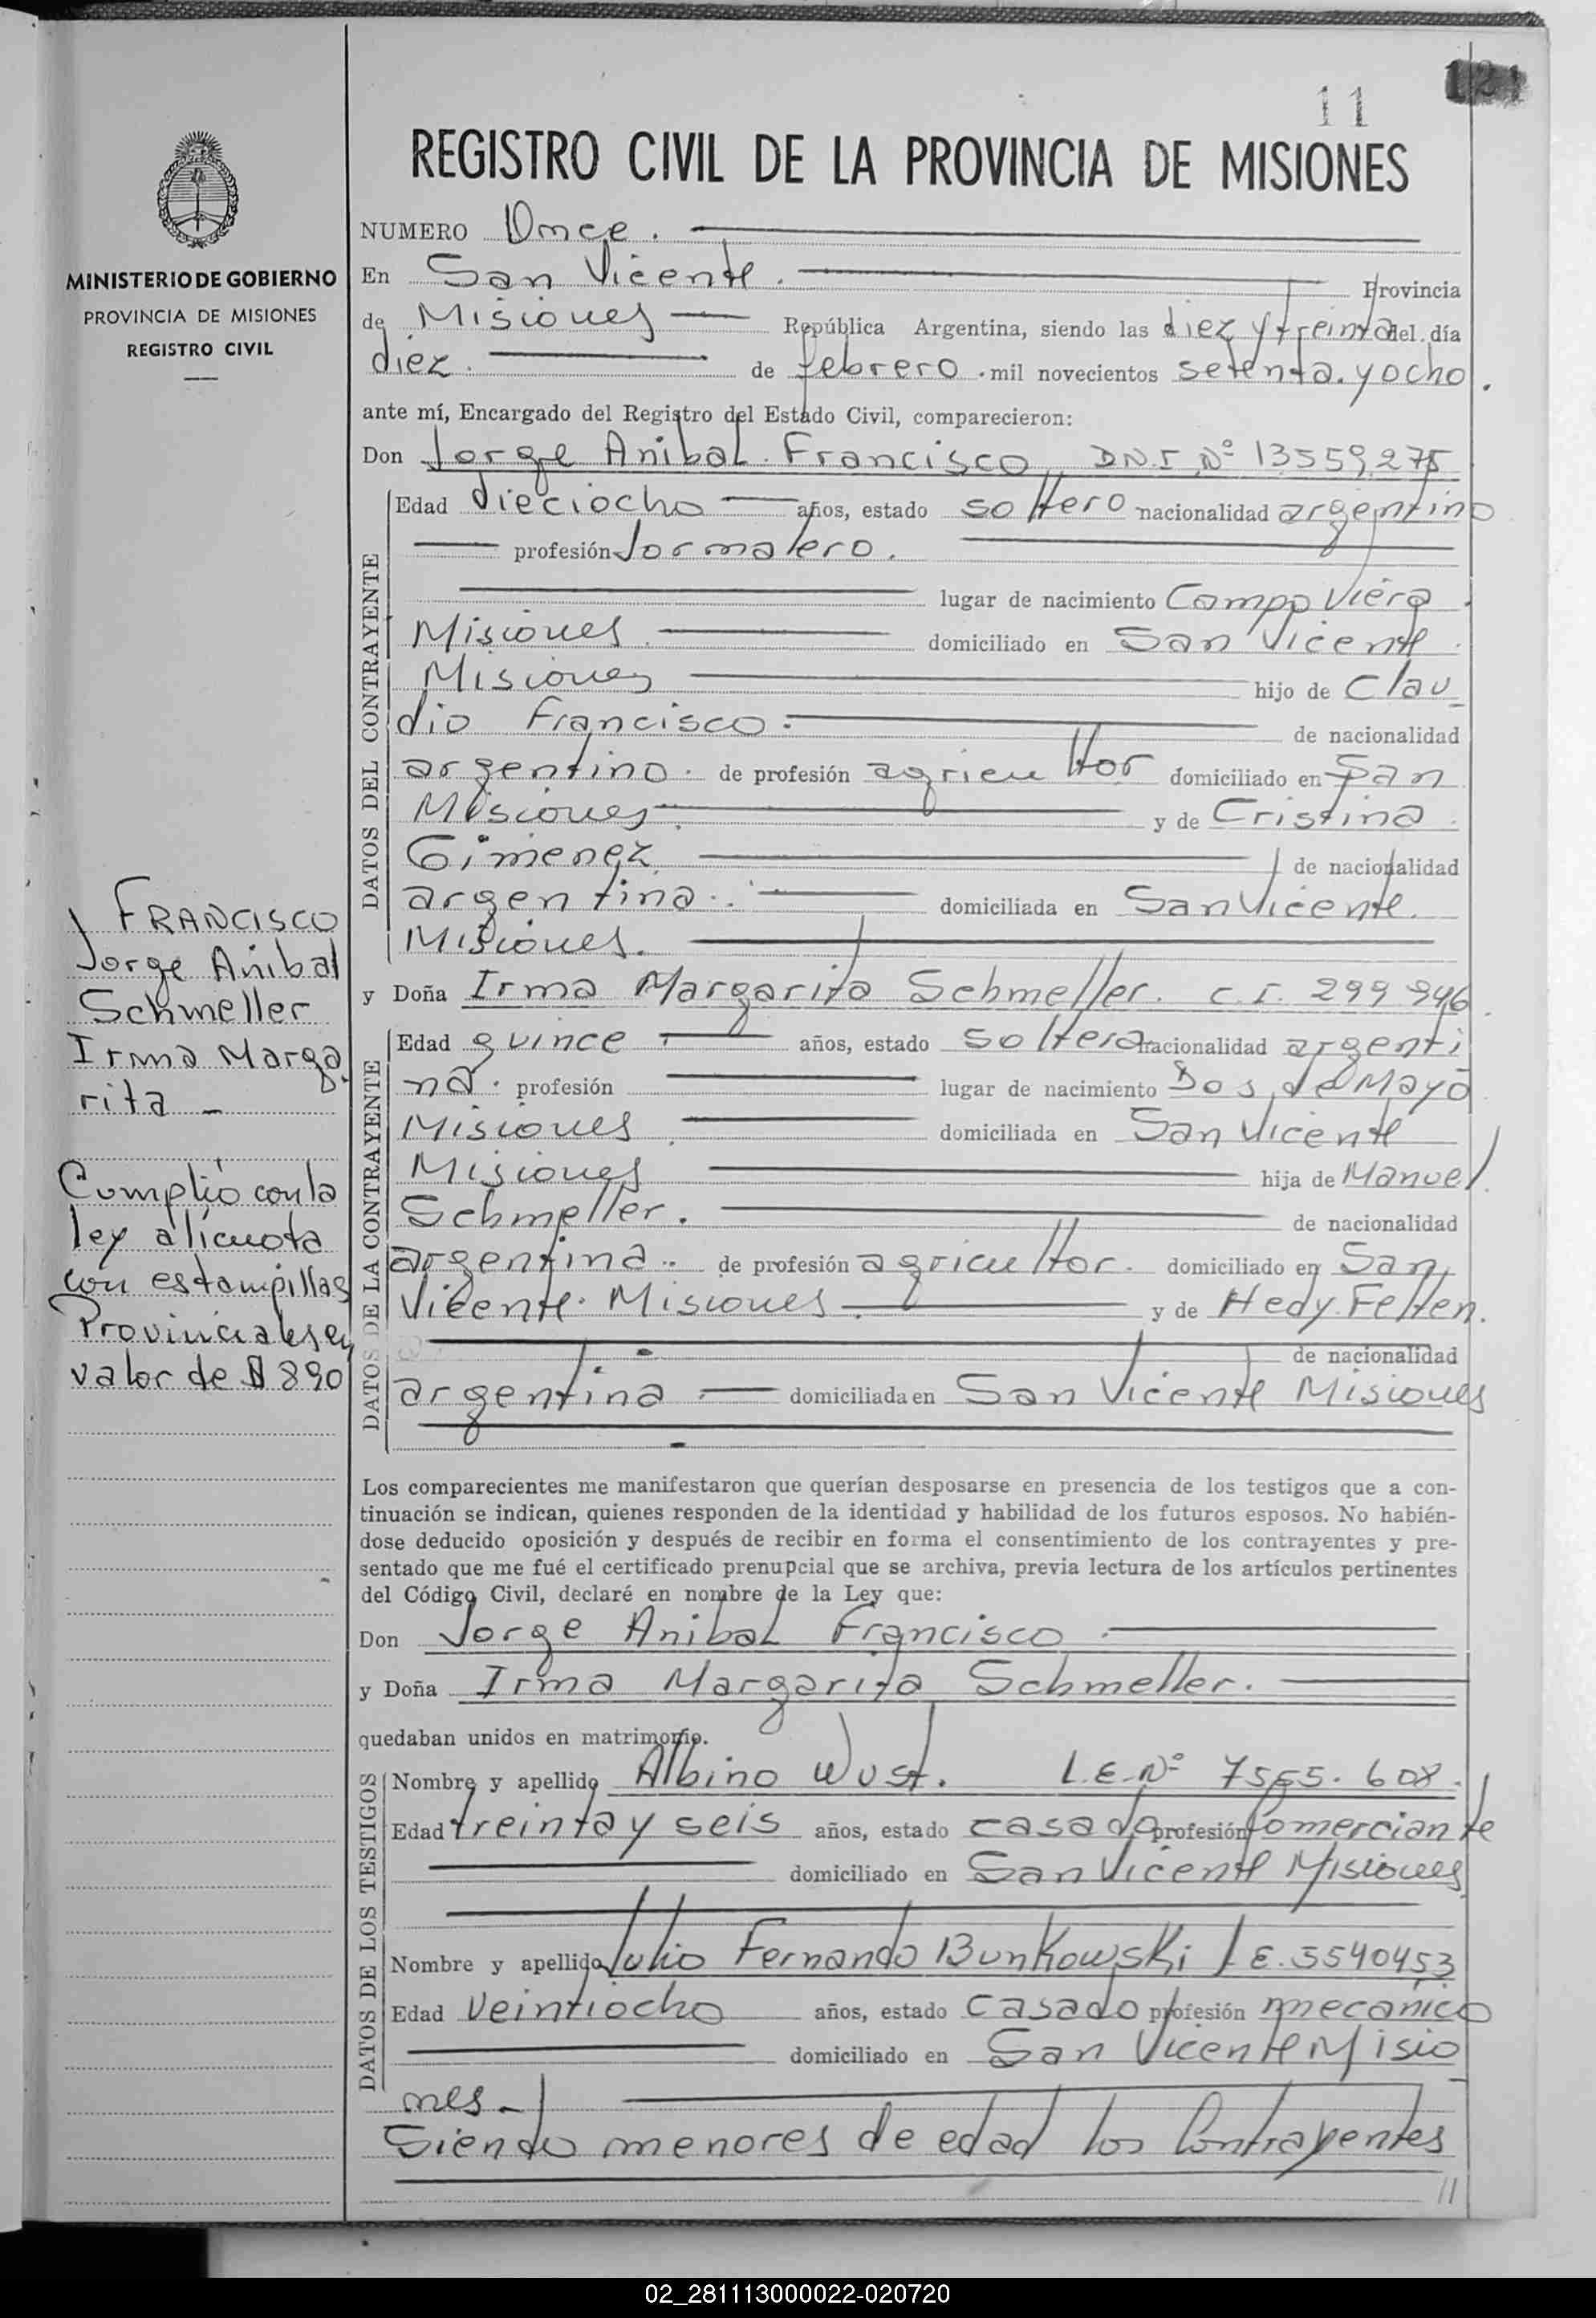 11
121
REGISTRO CIVIL DE LA PROVINCIA DE MISIONES
MINISTERIO DE GOBIERNO
PROVINCIA DE MISIONES
REGISTRO CIVIL
NUMERO Once.
En San Vicente. Provincia
de Misiones República Argentina, siendo las diez y treinta del día
diez. de febrero. mil novecientos setenta. y ocho.
ante mí, Encargado del Registro del Estado Civil, comparecieron:
Don Jorge Anibal Francisco, DNI Nº 13559275
DATOS DEL CONTRAYENTE
Edad dieciocho años, estado soltero nacionalidad argentino
profesión Jornalero.
lugar de nacimiento Campo Viera.
Misiones domiciliado en San Vicente.
Misiones hijo de Clau
dio Francisco. de nacionalidad
argentino. de profesión agricultor domiciliado en San
Misiones. y de Cristina
Gimenez de nacionalidad
argentina. domiciliada en San Vicente.
Misiones.
y Doña Irma Margarita Schmeller. C.I. 299 946.
DATOS DE LA CONTRAYENTE
Edad quince años, estado soltera nacionalidad argenti
na. profesión lugar de nacimiento Dos de Mayo
Misiones domiciliada en San Vicente
Misiones hija de Manuel.
Schmeller. de nacionalidad
argentina. de profesión agricultor. domiciliado en San
Vicente. Misiones y de Hedy Felten.
de nacionalidad
argentina domiciliada en San Vicente Misiones
Los comparecientes me manifestaron que querían desposarse en presencia de los testigos que a con-
tinuación se indican, quienes responden de la identidad y habilidad de los futuros esposos. No habién-
dose deducido oposición y después de recibir en forma el consentimiento de los contrayentes y pre-
sentado que me fué el certificado prenupcial que se archiva, previa lectura de los artículos pertinentes
del Código Civil, declaré en nombre de la Ley que:
Don Jorge Anibal Francisco.
y Doña Irma Margarita Schmeller.
quedaban unidos en matrimonio.
DATOS DE LOS TESTIGOS
Nombre y apellido Albino Wust. L.E. Nº 7565.608.
Edad treinta y seis años, estado casado profesión Comerciante
domiciliado en San Vicente Misiones
Nombre y apellido Julio Fernando Bunkowski L.E. 5540453
Edad veintiocho años, estado casado profesión mecanico
domiciliado en San Vicente Misio
nes_
Siendo menores de edad los Contrayentes
//
FRANCISCO
Jorge Anibal
Schmeller
Irma Marga
rita _
Cumplio con la
ley alicuota
con estampillas
Provinciales en
valor de $ 890
02_281113000022-020720